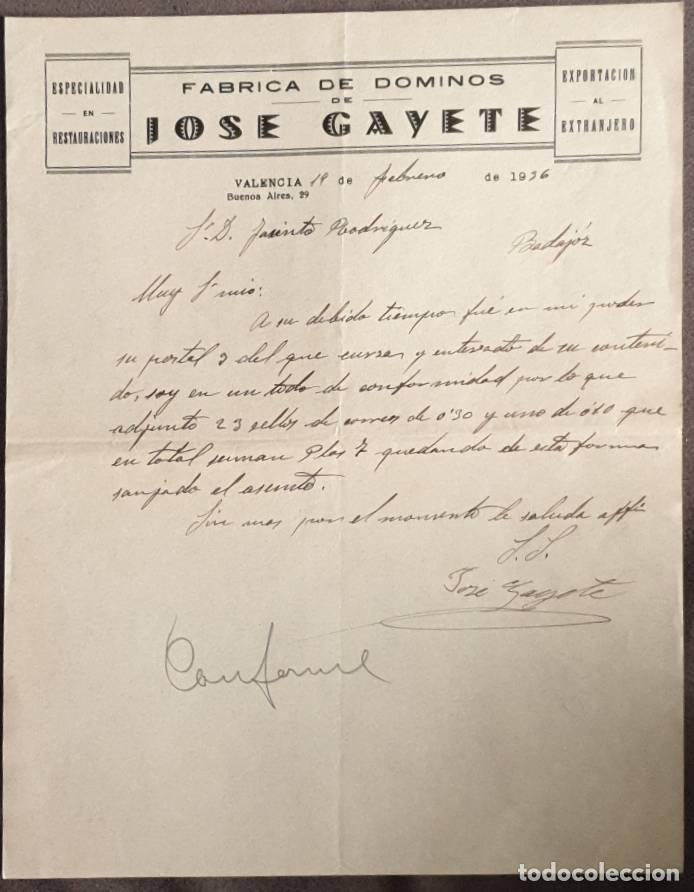 ESPECIALIDAD
EN
RESTAURACIONES
FABRICA DE DOMINOS
DE
JOSE GAYETE
EXPORTACION
AL
EXTRANJERO
VALENCIA 19 de febrero de 1936
Buenos Aires, 29
Sr. D. Jacinto Rodriguez
Badajóz
Muy Sr mio:
A su debido tiempo fué en mi poder
su postal 3 del que cursa y enterado de su conteni-
do, soy en un todo de conformidad por lo que
adjunto 23 sellos de correos de 0'30 y uno de 0'10 que
en total suman Ptas 7 quedando de esta forma
sanjado el asunto.
Sin mas por el momento le saluda affº
S. S.
José Gayete
Conforme
todocoleccion.net